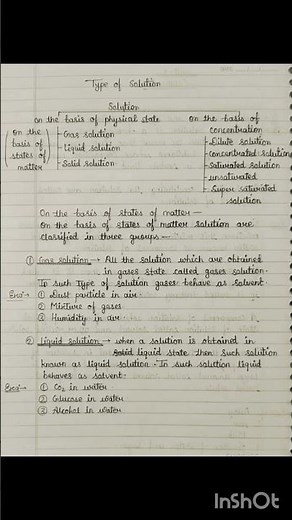 Type of Solution
Solution
on the basis of physical state
Gas solution
Liquid solution
Solid solution
(on the
basis of
states of
matter)
on the basis of
concentration
Dilute solution
Concentrated solution
Saturated solution
unsaturated
Super saturated
solution
On the basis of states of matter —
On the basis of states of matter solution are
classified in three groups —
① Gas solution → All the solution which are obtained
in gases state called gases solution.
In such type of solution gases behave as solvent.
① Dust particle in air
② Mixture of gases
③ Humidity in air.
② liquid solution → when a solution is obtained in
liquid state then such solution
known as liquid solution. In such solution liquid
behaves as solvent.
① CO₂ in water
② Glucose in water
③ Alcohol in water
InShOt